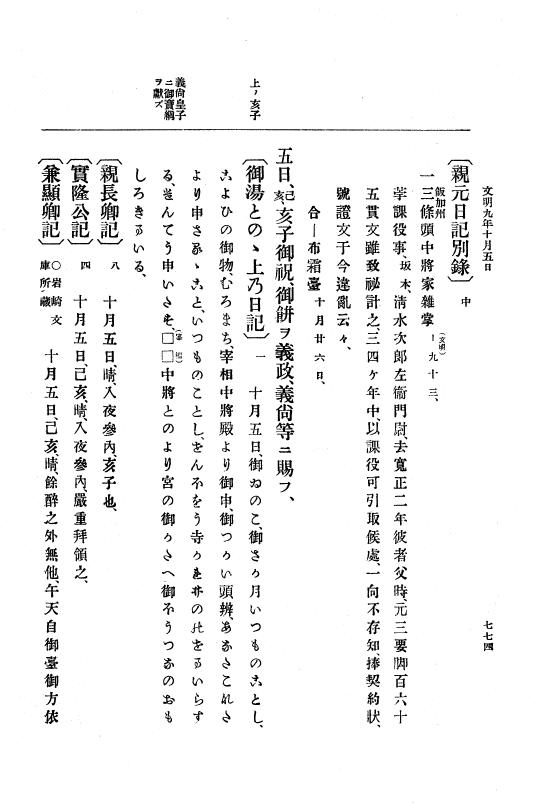 文明九年十月五日
七七四
〔親元日記別錄〕中
飯加州
一三條頭中將家雜掌
(文明)
ー九十三、
莘課役事、坂本、淸水次郎左衞門尉、去寬正二年彼者父時、元三要脚百六十
五貫文雖致祕計之、三四ケ年中、以課役可引取候處、一向不存知、捧契約狀、
號證文于今違亂云々、
合ー布霜臺 十月廿六日、
五日、己亥、亥子御祝、御餠ヲ義政、義尙等ニ賜フ、
上ノ亥子
〔御湯とのゝ上乃日記〕一 十月五日、御ゐのこ、御さか月いつものことし、
こよひの御物、むろまち、宰相中將殿より御申、御つかい頭辨、あなたこれさ
より申さるゝこと、いつものことし、
義尙皇子ニ御寶綱ヲ獻ズ
中將とのより宮の御かさへ御そうつなのおも
しろきまいる、
〔親長卿記〕八 十月五日、晴、入夜參內、亥子也、
〔實隆公記〕四 十月五日、己亥、晴、入夜參內、嚴重拜領之、
〔兼顯卿記〕○岩崎文庫所藏 十月五日、己亥、晴、餘醉之外無他、午天自御臺御方依